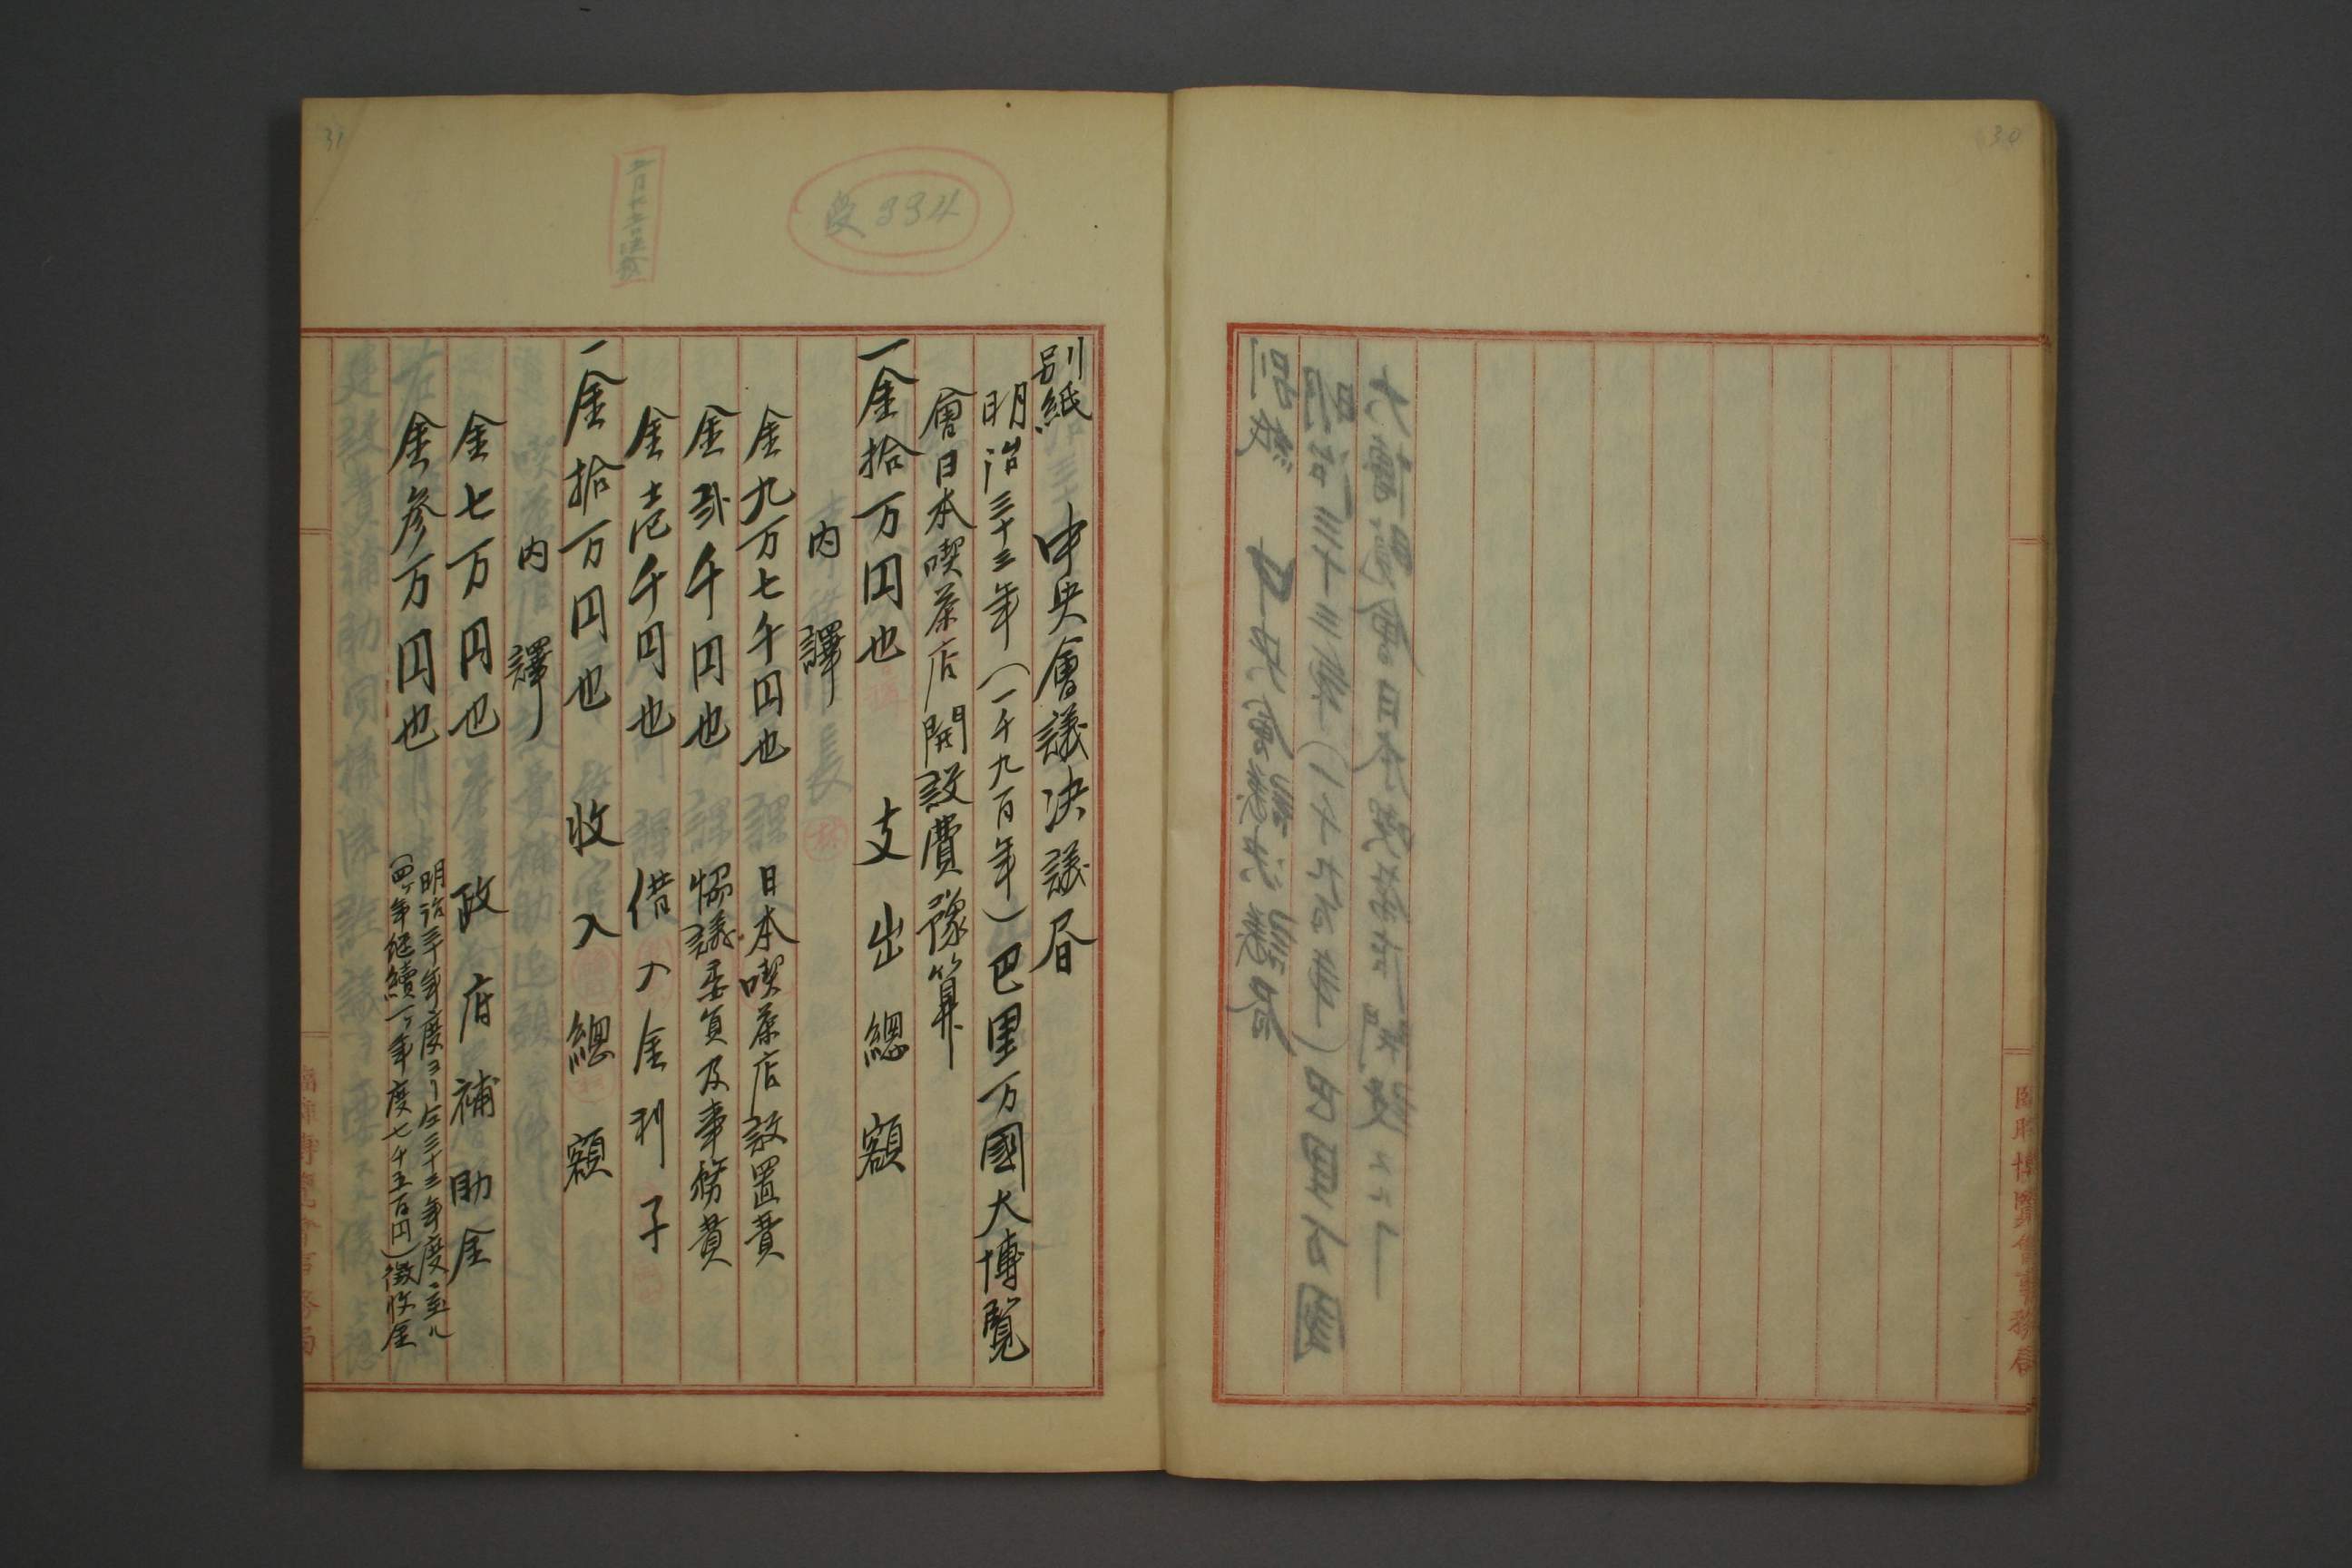 30
臨時博覧會事務局
31
受994
別紙
中央會議決議書
明治三十三年(一千九百年)巴里万國大博覧
會日本喫茶店開設費豫算
一金拾万円也 支出總額
内譯
金九万七千円也 日本喫茶店設置費
金弐千円也 協議委員及事務費
金壱千円也 借入金利子
一金拾万円也 收入總額
内譯
金七万円也 政府補助金
金参万円也
明治三十年度ヨリ仝三十三年度ニ至ル
(四ヶ年継續一ヶ年度七千五百円)徴收金